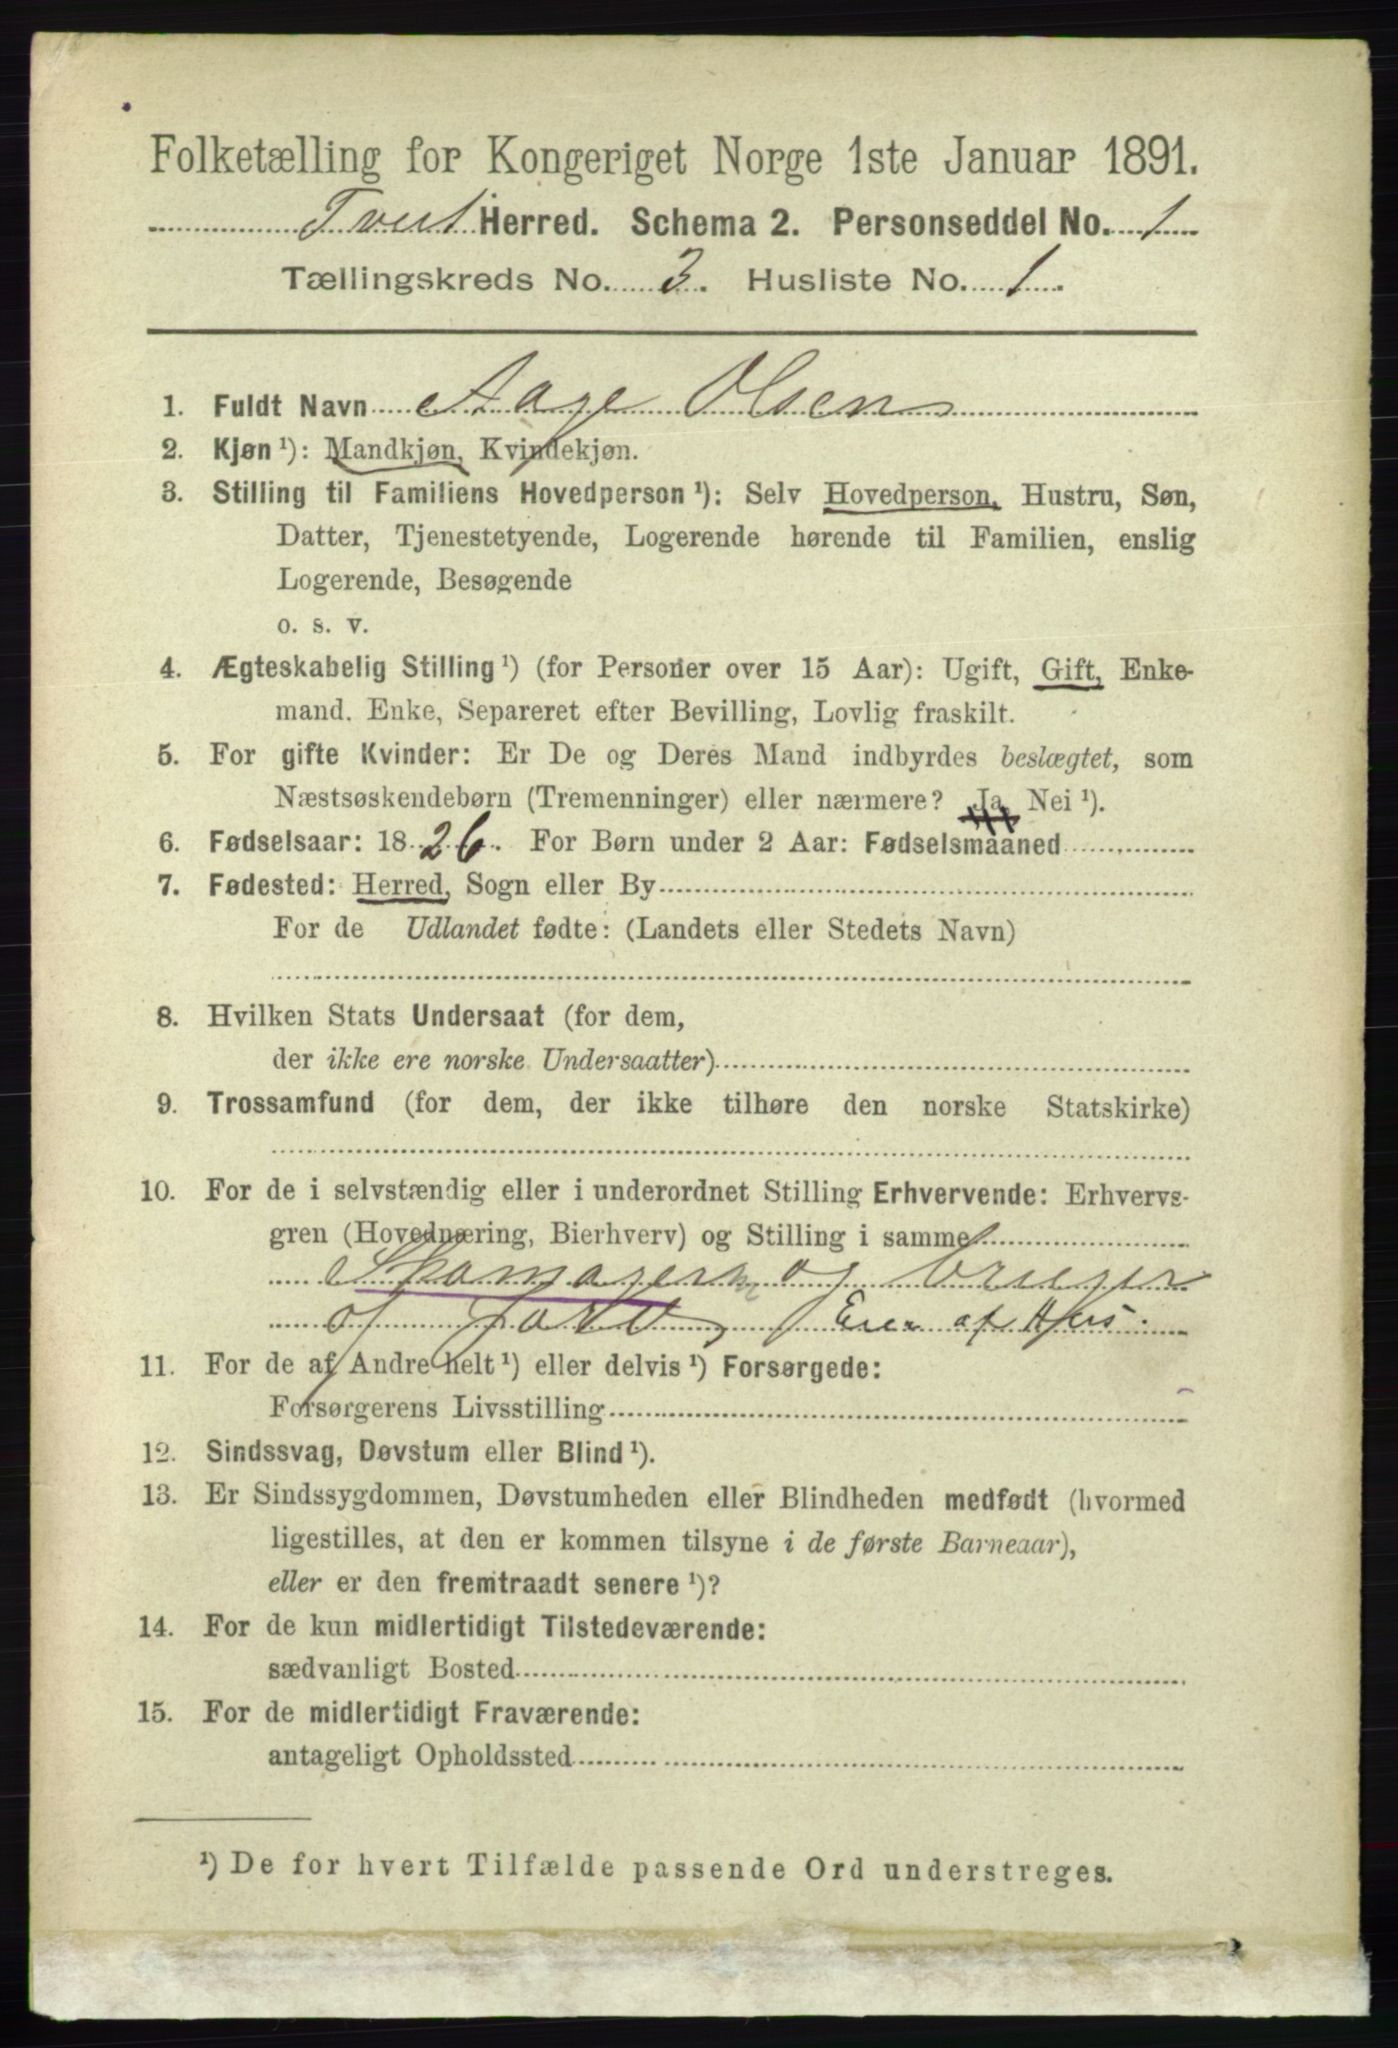 Folketælling for Kongeriget Norge 1ste Januar 1891.
Tveit Herred. Schema 2. Personseddel No. 1
Tællingskreds No. 3. Husliste No. 1.
1. Fuldt Navn Aage Olsen
2. Kjøn ¹): Mandkjøn, Kvindekjøn.
3. Stilling til Familiens Hovedperson ¹): Selv Hovedperson, Hustru, Søn,
Datter, Tjenestetyende, Logerende hørende til Familien, enslig
Logerende, Besøgende
o. s. v.
4. Ægteskabelig Stilling ¹) (for Personer over 15 Aar): Ugift, Gift, Enke-
mand. Enke, Separeret efter Bevilling, Lovlig fraskilt.
5. For gifte Kvinder: Er De og Deres Mand indbyrdes beslægtet, som
Næstsøskendebørn (Tremenninger) eller nærmere? Ja, Nei ¹).
6. Fødselsaar: 1826. For Børn under 2 Aar: Fødselsmaaned
7. Fødested: Herred, Sogn eller By
For de Udlandet fødte: (Landets eller Stedets Navn)
8. Hvilken Stats Undersaat (for dem,
der ikke ere norske Undersaatter)
9. Trossamfund (for dem, der ikke tilhøre den norske Statskirke)
10. For de i selvstændig eller i underordnet Stilling Erhvervende: Erhvervs-
gren (Hovednæring, Bierhverv) og Stilling i samme
Skomagerm og bruger
af Jord, Eier af Hus.
11. For de af Andre helt ¹) eller delvis ¹) Forsørgede:
Forsørgerens Livsstilling
12. Sindssvag, Døvstum eller Blind ¹).
13. Er Sindssygdommen, Døvstumheden eller Blindheden medfødt (hvormed
ligestilles, at den er kommen tilsyne i de første Barneaar),
eller er den fremtraadt senere ¹)?
14. For de kun midlertidigt Tilstedeværende:
sædvanligt Bosted
15. For de midlertidigt Fraværende:
antageligt Opholdssted
¹) De for hvert Tilfælde passende Ord understreges.